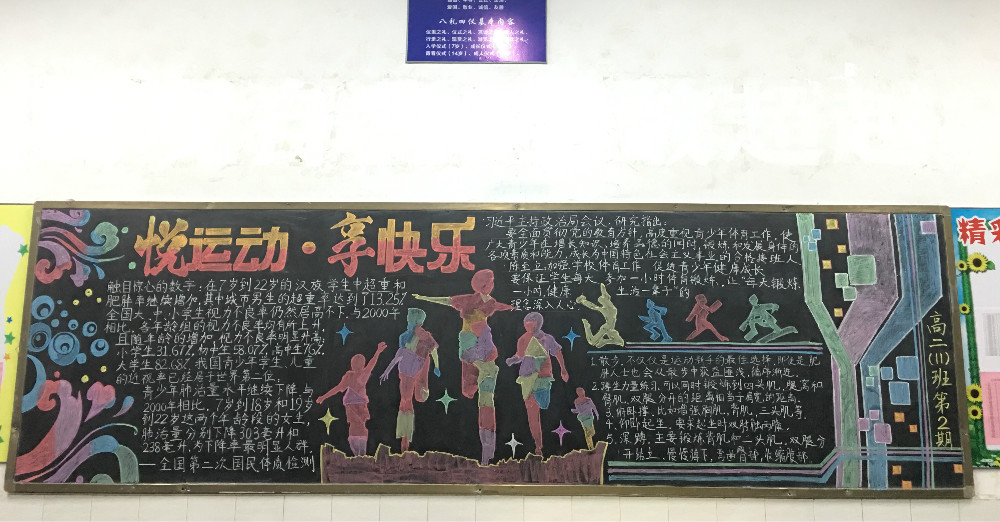 八礼四仪基本内容
悦运动·享快乐
触目惊心的数字：在7岁到22岁的汉族学生中超重和
肥胖率继续增加，其中城市男生的超重率达到了13.25%
全国大、中、小学生视力不良率仍然居高不下，与2000年
相比，各年龄组的视力不良率均有所上升，
且随年龄的增加，视力不良率明显升高：
小学生31.67%，初中生58.07%，高中生76%，
大学生82.68%，我国青少年学生、儿童
的近视率已经居于世界第二位，
青少年肺活量水平继续下降，与
2000年相比，7岁到18岁和19岁
到22岁这两个年龄段的女生，
肺活量分别下降303毫升和
238毫升，为下降率最明显人群。
——全国第二次国民体质检测
习近平主持政治局会议，研究指出：
要全面贯彻党的教育方针，高度重视青少年体育工作，使
广大青少年在增长知识、培养品德的同时，锻炼和发展身体的
各项素质和能力，成长为中国特色社会主义事业的合格接班人
陈至立：加强学校体育工作，促进青少年健康成长
要保证学生每天参加一小时体育锻炼，让"每天锻炼
一小时，健康
生活一辈子"的
理念深入人心。
1.散步：不仅仅是运动新手的最佳选择，即使是肌
胖人士也会从散步中获益匪浅，循序渐进。
2.蹲坐力量练习：可以同时锻炼到四头肌，腿窝和
臀肌，双腿分开的距离相当于肩宽的距离。
3.俯卧撑：比如增强胸肌，背肌，三头肌等
4.仰卧起坐：要求起坐时双肘触两膝。
5.深蹲：主要锻炼背肌和二头肌，双腿分
开站立，慢慢蹲下，
高二(11)班第2期
精彩